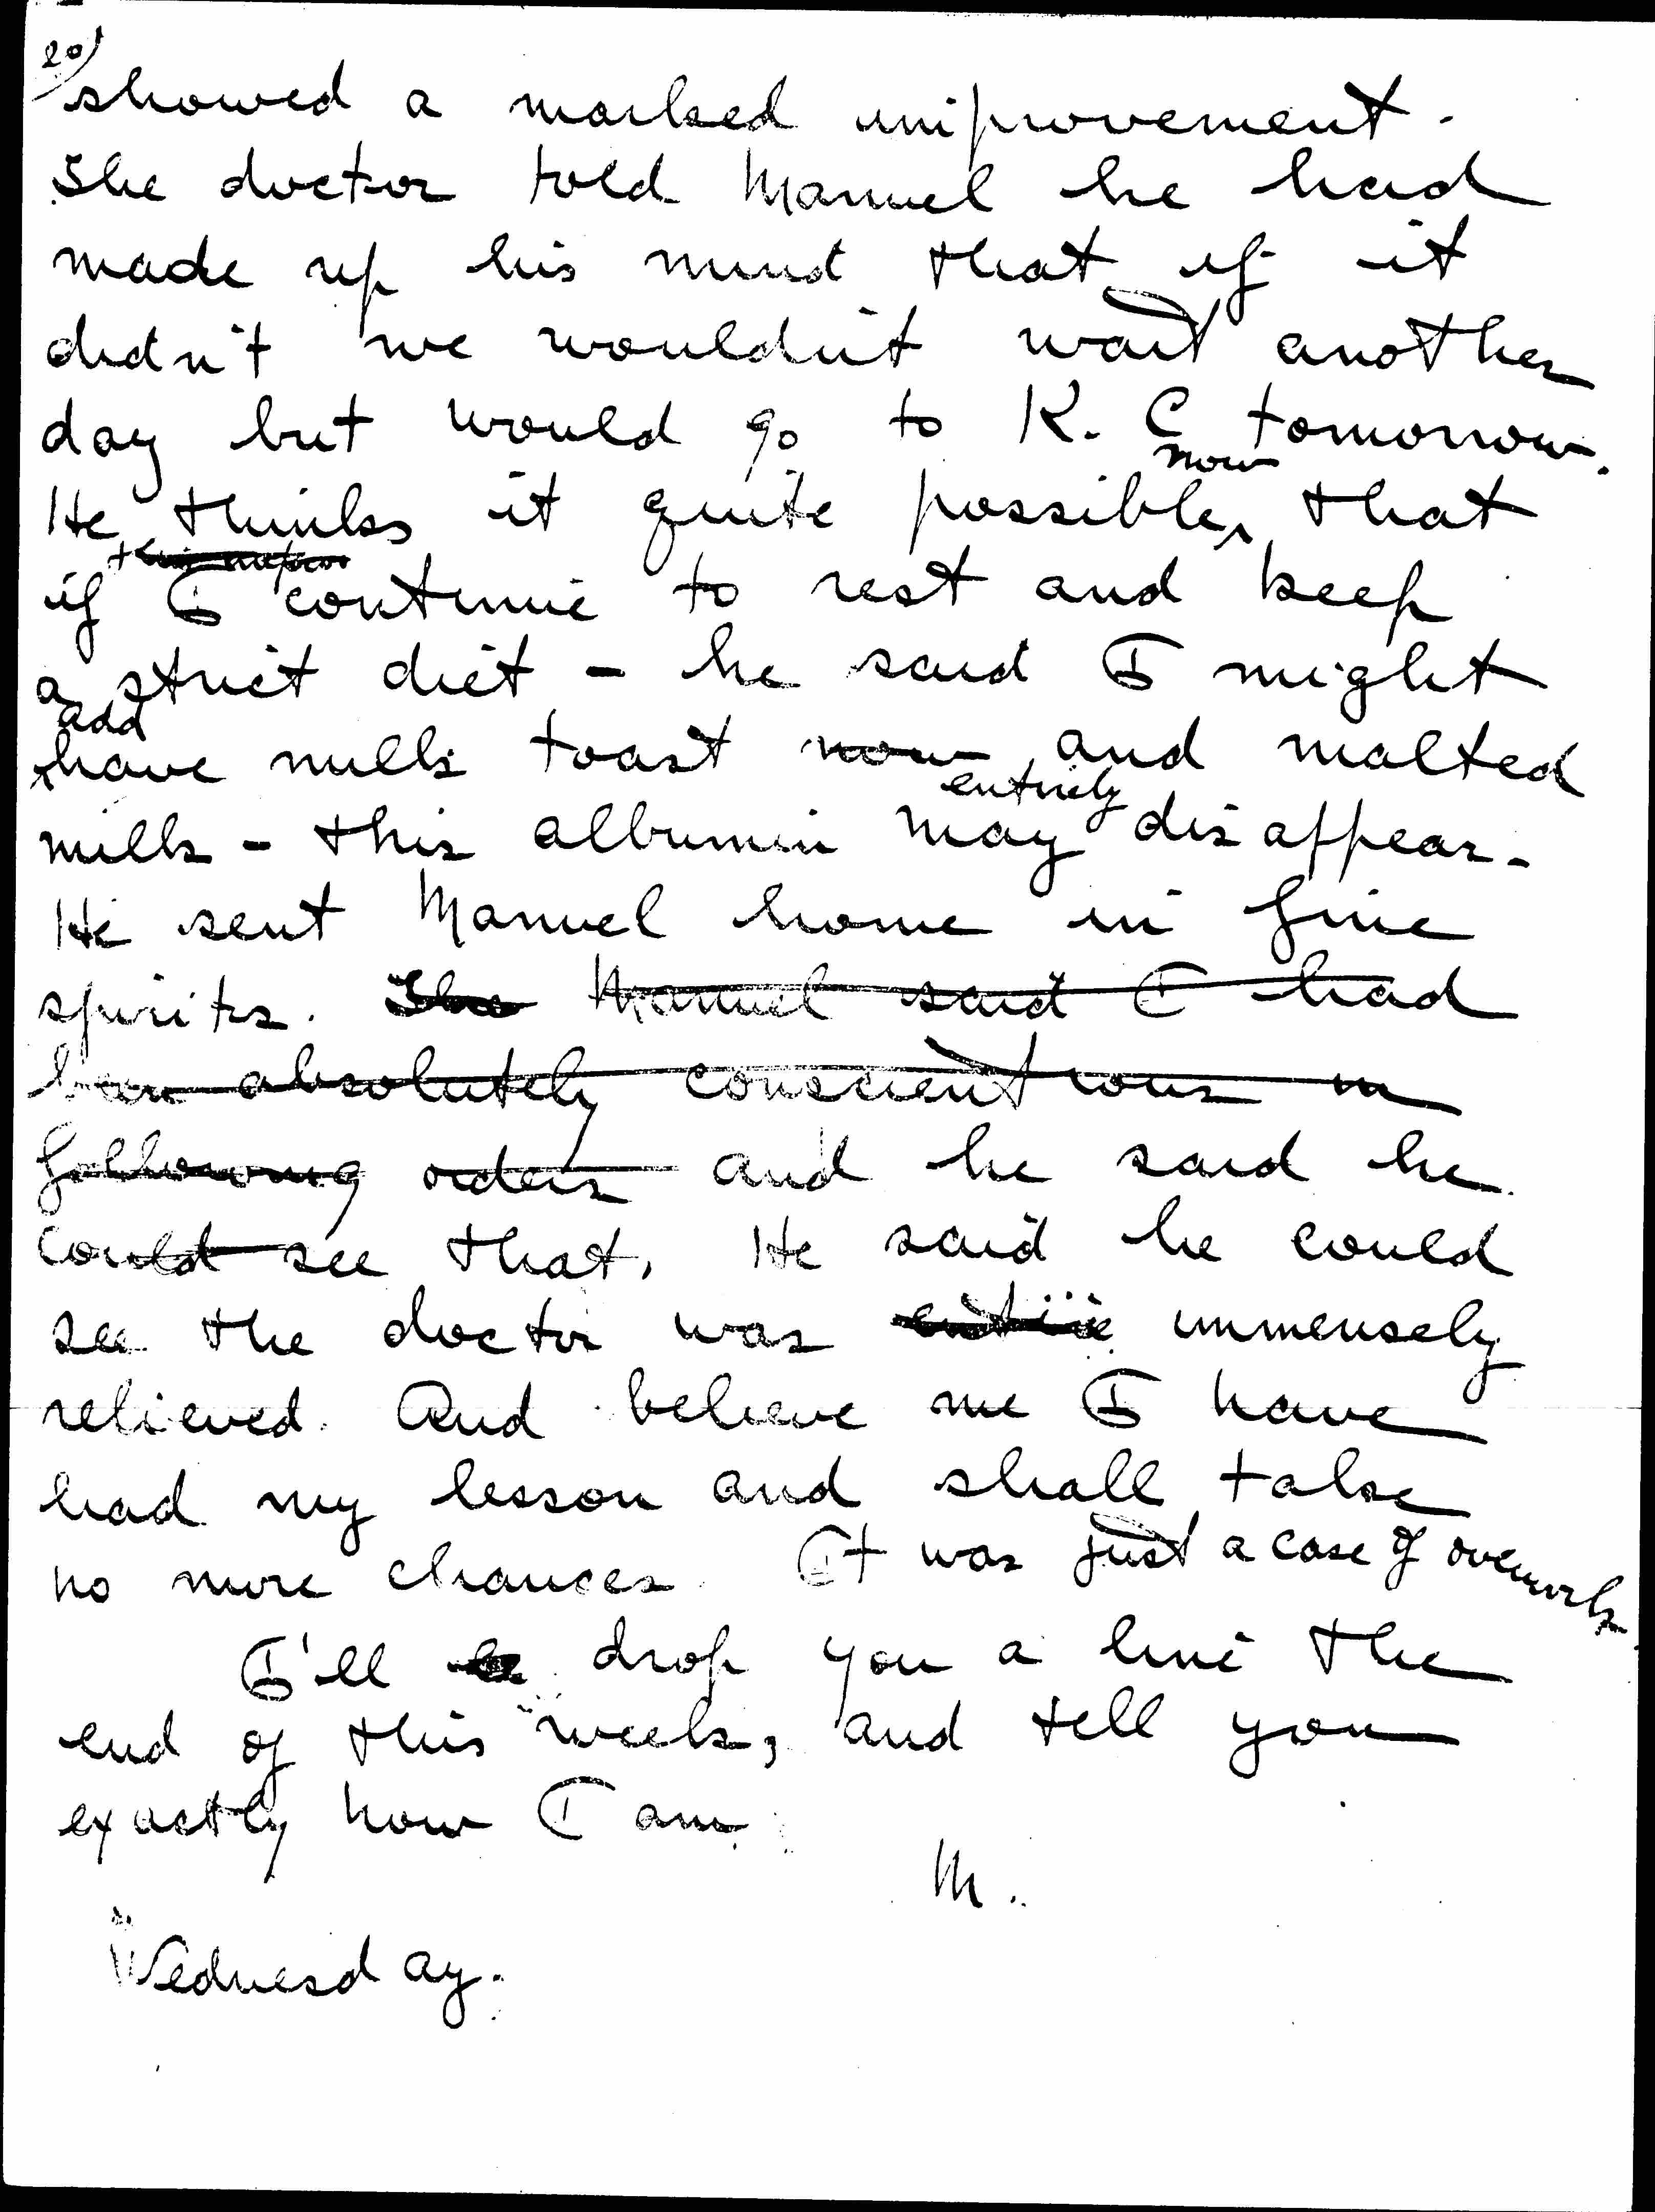 20)
showed a marked improvement.
The doctor told Manuel he had
made up his mind that if it
didn't we wouldn't wait another
day but would go to K. C tomorrow.
now
He thinks it quite possible, that
if I continue to rest and keep
a strict diet - he said I might
add
have milk toast now and malted
entirely
milk - this albumin may disappear.
He sent Manuel home in fine
spirits. The Manuel said I had
been absolutely conscientious in
following orders and he said he
could see that. He said he could
see the doctor was entire immensely
relieved. And believe me I have
had my lesson and shall take
no more chances. It was just a case of overwork.
I'll drop you a line the
end of this week, and tell you
exactly how I am.
M.
Wednesday.